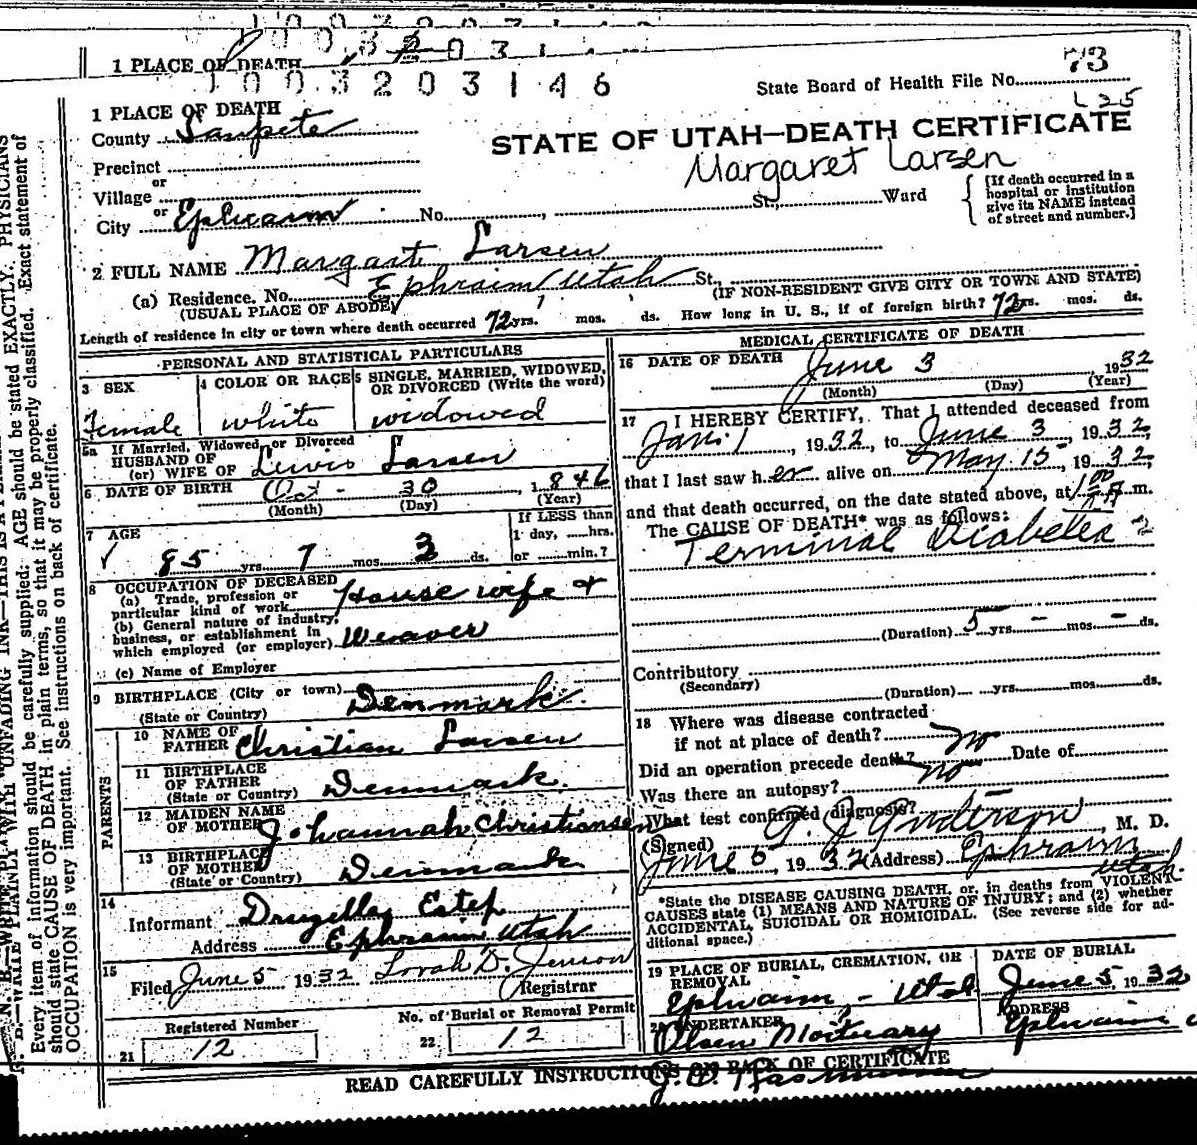 1 PLACE OF DEATH
1003203146
State Board of Health File No. 73
L25
1 PLACE OF DEATH
County Sanpete
STATE OF UTAH—DEATH CERTIFICATE
Precinct
Margaret Larsen
or
Village
St., Ward
[If death occurred in a hospital or institution give its NAME instead of street and number.]
or
City Ephraim No.
2 FULL NAME Margart Larsen
(a) Residence. No. Ephraim Utah St.,
(USUAL PLACE OF ABODE) (IF NON-RESIDENT GIVE CITY OR TOWN AND STATE)
Length of residence in city or town where death occurred 72 yrs. mos. ds. How long in U. S., if of foreign birth? 72 yrs. mos. ds.
PERSONAL AND STATISTICAL PARTICULARS
3 SEX
Female
4 COLOR OR RACE
white
5 SINGLE, MARRIED, WIDOWED, OR DIVORCED (Write the word)
widowed
5a If Married, Widowed, or Divorced
HUSBAND OF
(or) WIFE OF Lewis Larsen
6 DATE OF BIRTH Oct - 30 1846
(Month) (Day) (Year)
7 AGE
85 yrs. 7 mos. 3 ds.
If LESS than
1 day, hrs.
or min.?
8 OCCUPATION OF DECEASED
(a) Trade, profession or
particular kind of work House wife +
(b) General nature of industry,
business, or establishment in
which employed (or employer) Weaver
(c) Name of Employer
9 BIRTHPLACE (City or town) Denmark
(State or Country)
PARENTS
10 NAME OF
FATHER Christian Larsen
11 BIRTHPLACE
OF FATHER Denmark.
(State or Country)
12 MAIDEN NAME
OF MOTHER Johannah Christiansen
13 BIRTHPLACE
OF MOTHER Denmark
(State or Country)
14
Informant Druzella Estep
Address Ephraim, Utah
15
Filed June 5 1932 Lorah D. Jenson
Registrar
Registered Number
21 12
No. of Burial or Removal Permit
22 12
MEDICAL CERTIFICATE OF DEATH
16 DATE OF DEATH June 3 1932
(Month) (Day) (Year)
17 I HEREBY CERTIFY, That I attended deceased from
Jan. 1, 1932, to June 3, 1932,
that I last saw her alive on May 15, 1932,
and that death occurred, on the date stated above, at 1 00 A m.
The CAUSE OF DEATH* was as follows:
Terminal Diabetea
(Duration) 5 yrs. - mos. - ds.
Contributory
(Secondary)
(Duration) yrs. mos. ds.
18 Where was disease contracted
if not at place of death? no
Did an operation precede death? no Date of
Was there an autopsy?
What test confirmed diagnosis?
(Signed) G. J. Anderson, M. D.
June 5, 1932 (Address) Ephraim
Utah
*State the DISEASE CAUSING DEATH, or, in deaths from VIOLENT
CAUSES state (1) MEANS AND NATURE OF INJURY; and (2) whether
ACCIDENTAL, SUICIDAL OR HOMICIDAL. (See reverse side for additional space.)
19 PLACE OF BURIAL, CREMATION, OR
REMOVAL
Ephraim, - Utah
DATE OF BURIAL
June 5, 1932
20 UNDERTAKER
Olsen Mortuary
ADDRESS
Ephraim
READ CAREFULLY INSTRUCTIONS ON BACK OF CERTIFICATE
Every item of information should be carefully supplied. AGE should be stated EXACTLY. PHYSICIANS
should state CAUSE OF DEATH in plain terms, so that it may be properly classified. Exact statement of
OCCUPATION is very important. See instructions on back of certificate.